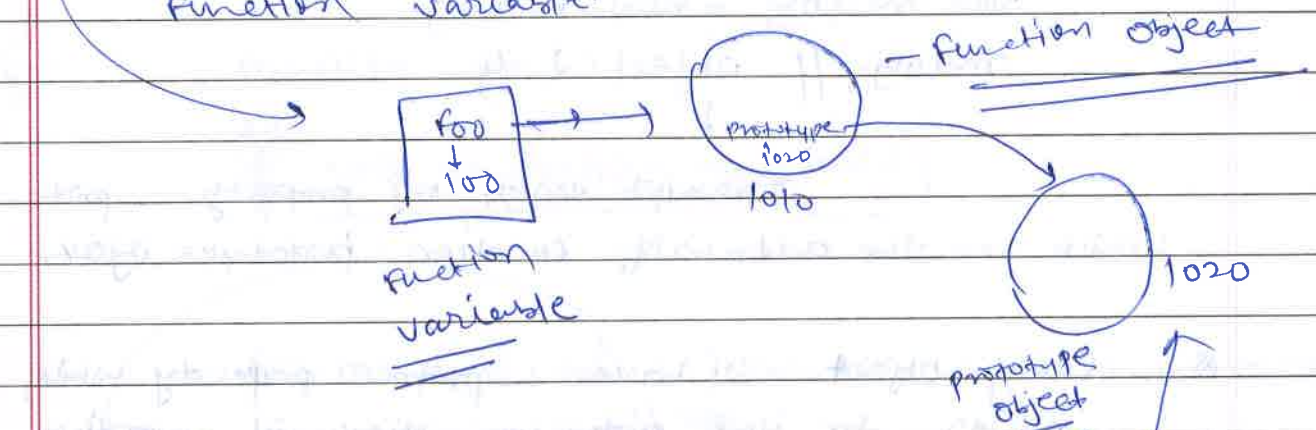 Function variable
- function object
foo
prototype
1020
100
1010
function
variable
1020
prototype
object